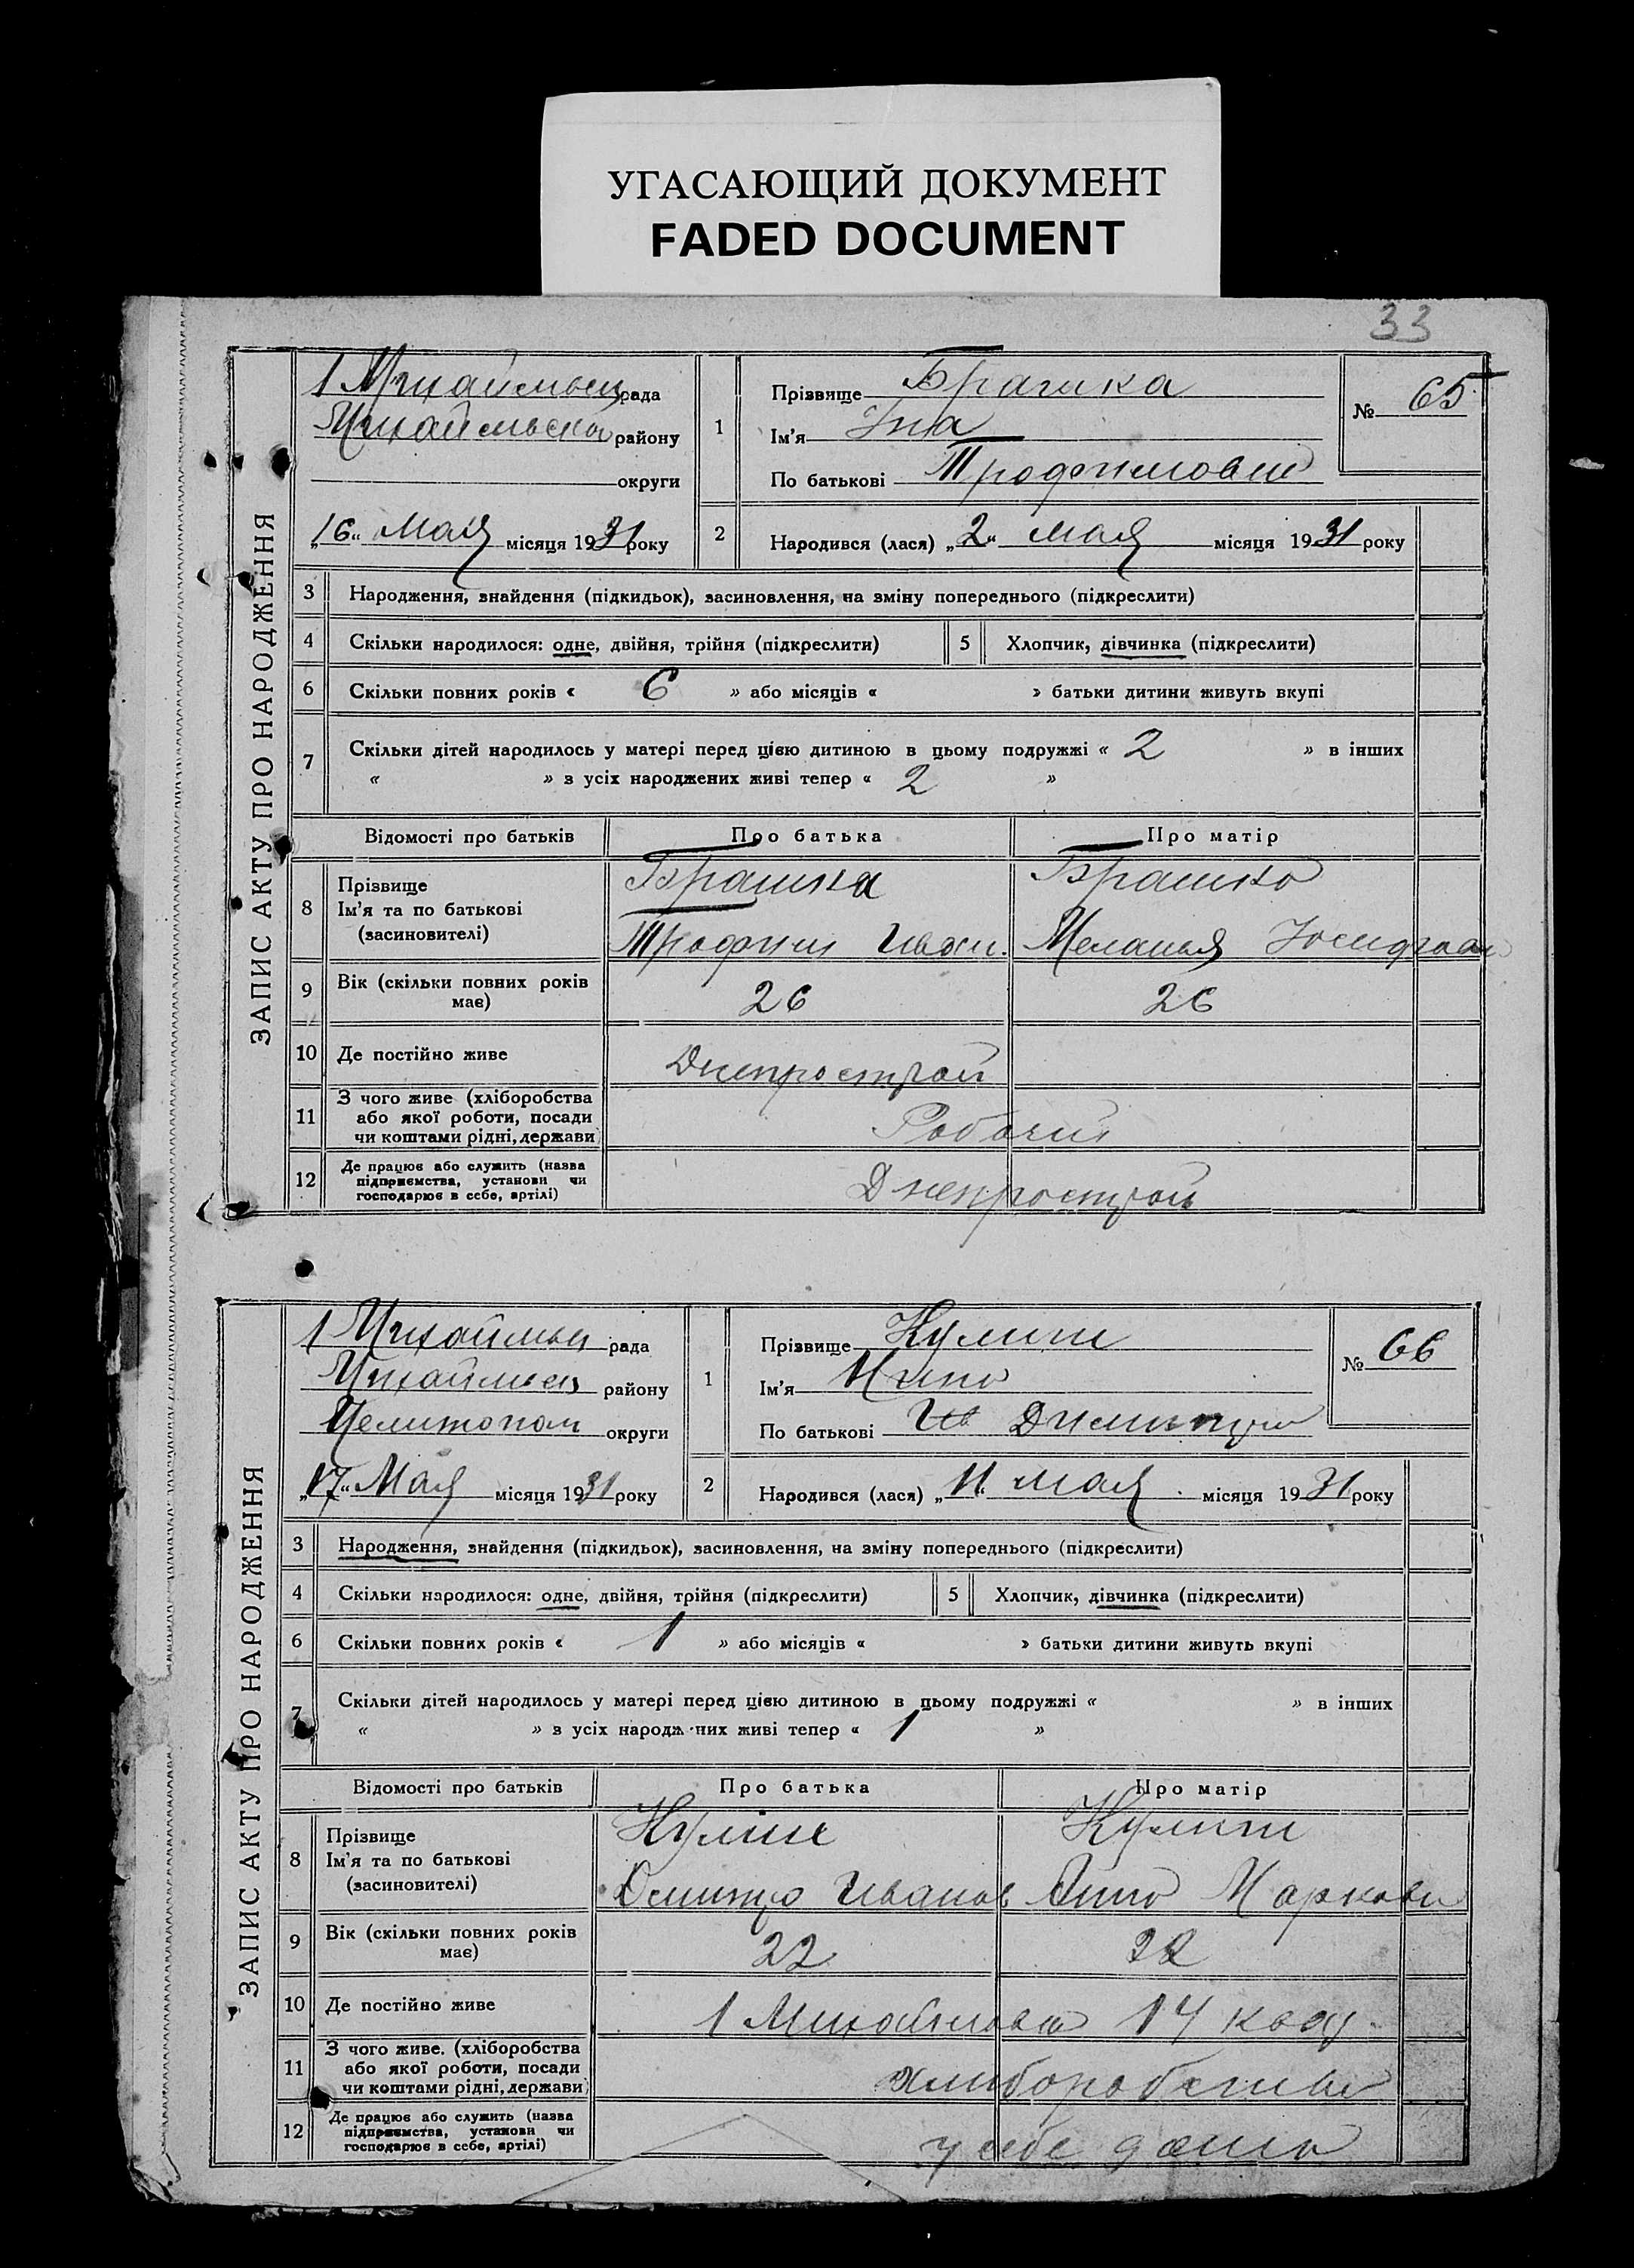 УГАСАЮЩИЙ ДОКУМЕНТ
FADED DOCUMENT
33
ЗАПИС АКТУ ПРО НАРОДЖЕННЯ
рада
району
округи
„16“ Мая місяця 1931 року
1
Прізвище
Ім'я
По батькові Трофимовна
№ 65
2
Народився (лася) „2“ мая місяця 1931 року
3 Народження, знайдення (підкидьок), засиновлення, на зміну попереднього (підкреслити)
4 Скільки народилося: одне, двійня, трійня (підкреслити) 5 Хлопчик, дівчинка (підкреслити)
6 Скільки повних років « 6 » або місяців « » батьки дитини живуть вкупі
7 Скільки дітей народилось у матері перед цією дитиною в цьому подружжі « 2 » в інших
« » з усіх народжених живі тепер « 2 »
Відомості про батьків Про батька Про матір
8 Прізвище
Ім'я та по батькові
(засиновителі)
Брашка Брашко
Трофим Иван. Меланья
9 Вік (скільки повних років має) 26 26
10 Де постійно живе Днепрострой
11 З чого живе (хліборобства
або якої роботи, посади
чи коштами рідні, держави) Рабочий
12 Де працює або служить (назва
підприємства, установи чи
господарює в себе, артілі) Днепрострой
ЗАПИС АКТУ ПРО НАРОДЖЕННЯ
рада
району
округи
„17“ Мая місяця 1931 року
1
Прізвище Кулиш
Ім'я
По батькові
№ 66
2
Народився (лася) „11“ мая місяця 1931 року
3 Народження, знайдення (підкидьок), засиновлення, на зміну попереднього (підкреслити)
4 Скільки народилося: одне, двійня, трійня (підкреслити) 5 Хлопчик, дівчинка (підкреслити)
6 Скільки повних років « 1 » або місяців « » батьки дитини живуть вкупі
7 Скільки дітей народилось у матері перед цією дитиною в цьому подружжі « » в інших
« » з усіх народжених живі тепер « 1 »
Відомості про батьків Про батька Про матір
8 Прізвище
Ім'я та по батькові
(засиновителі)
Куліш Кулиш
Дмитро Иванов
9 Вік (скільки повних років має) 22 22
10 Де постійно живе 1 Михайловка 14
11 З чого живе. (хліборобства
або якої роботи, посади
чи коштами рідні, держави)
12 Де працює або служить (назва
підприємства, установи чи
господарює в себе, артілі) у себе дома